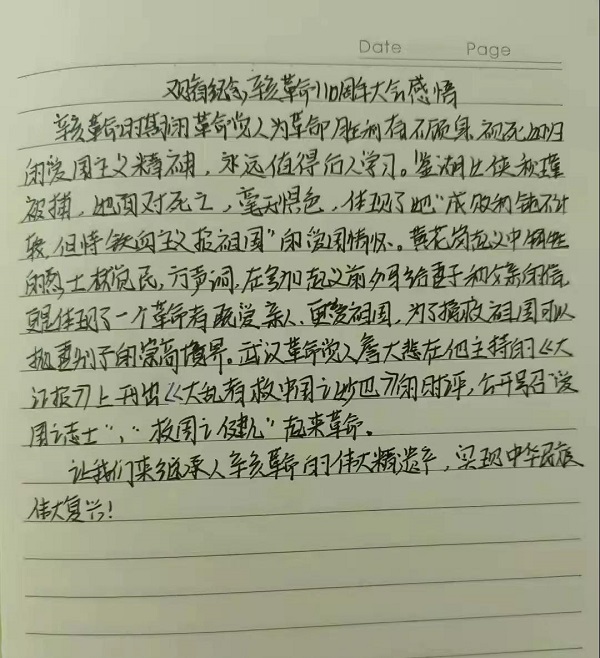 Date Page
观看纪念辛亥革命110周年大会感悟
辛亥革命时期的革命党人为革命胜利奋不顾身、视死如归
的爱国主义精神，永远值得后人学习。鉴湖女侠秋瑾
被捕，她面对死亡，毫无惧色，体现了她“成败利钝不计
较，但恃铁血主义报祖国”的爱国情怀。黄花岗起义中牺牲
的烈士林觉民，方声洞，在参加起义前夕写给妻子和父亲的信
更是体现了一个革命者既爱亲人、更爱祖国，为了拯救祖国可以
抛妻别子的崇高境界。武汉革命党人詹大悲在他主持的《大
江报》上刊出《大乱者救中国之妙药也》的时评，公开号召“爱
国之志士”、“救国之健儿”起来革命。
让我们来继承人辛亥革命的伟大精遗产，实现中华民族
伟大复兴！